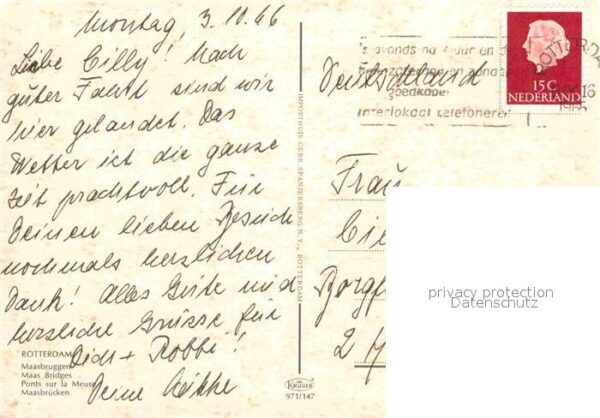 Montag, 3.10.66
Liebe Cilly! Nach
guter Fahrt sind wir
hier gelandet. Das
Wetter ist die ganze
Zeit prachtvoll. Für
Deinen lieben Besuch
nochmals herzlichen
Dank! Alles Gute und
herzliche Grüsse für
Dich + Robbe!
Deine
ROTTERDAM
Maasbruggen
Maas Bridges
Ponts sur la Meuse
Maasbrücken
IMPORTHUIS GEBR. SPANJERSBERG N.V., ROTTERDAM
KRÜGER
971/147
's avonds na uur en
en zondag
goedkoper
interlokaal telefoneren
ROTTERDA
16
15 C
NEDERLAND
Deutschland
Frau
privacy protection
Datenschutz